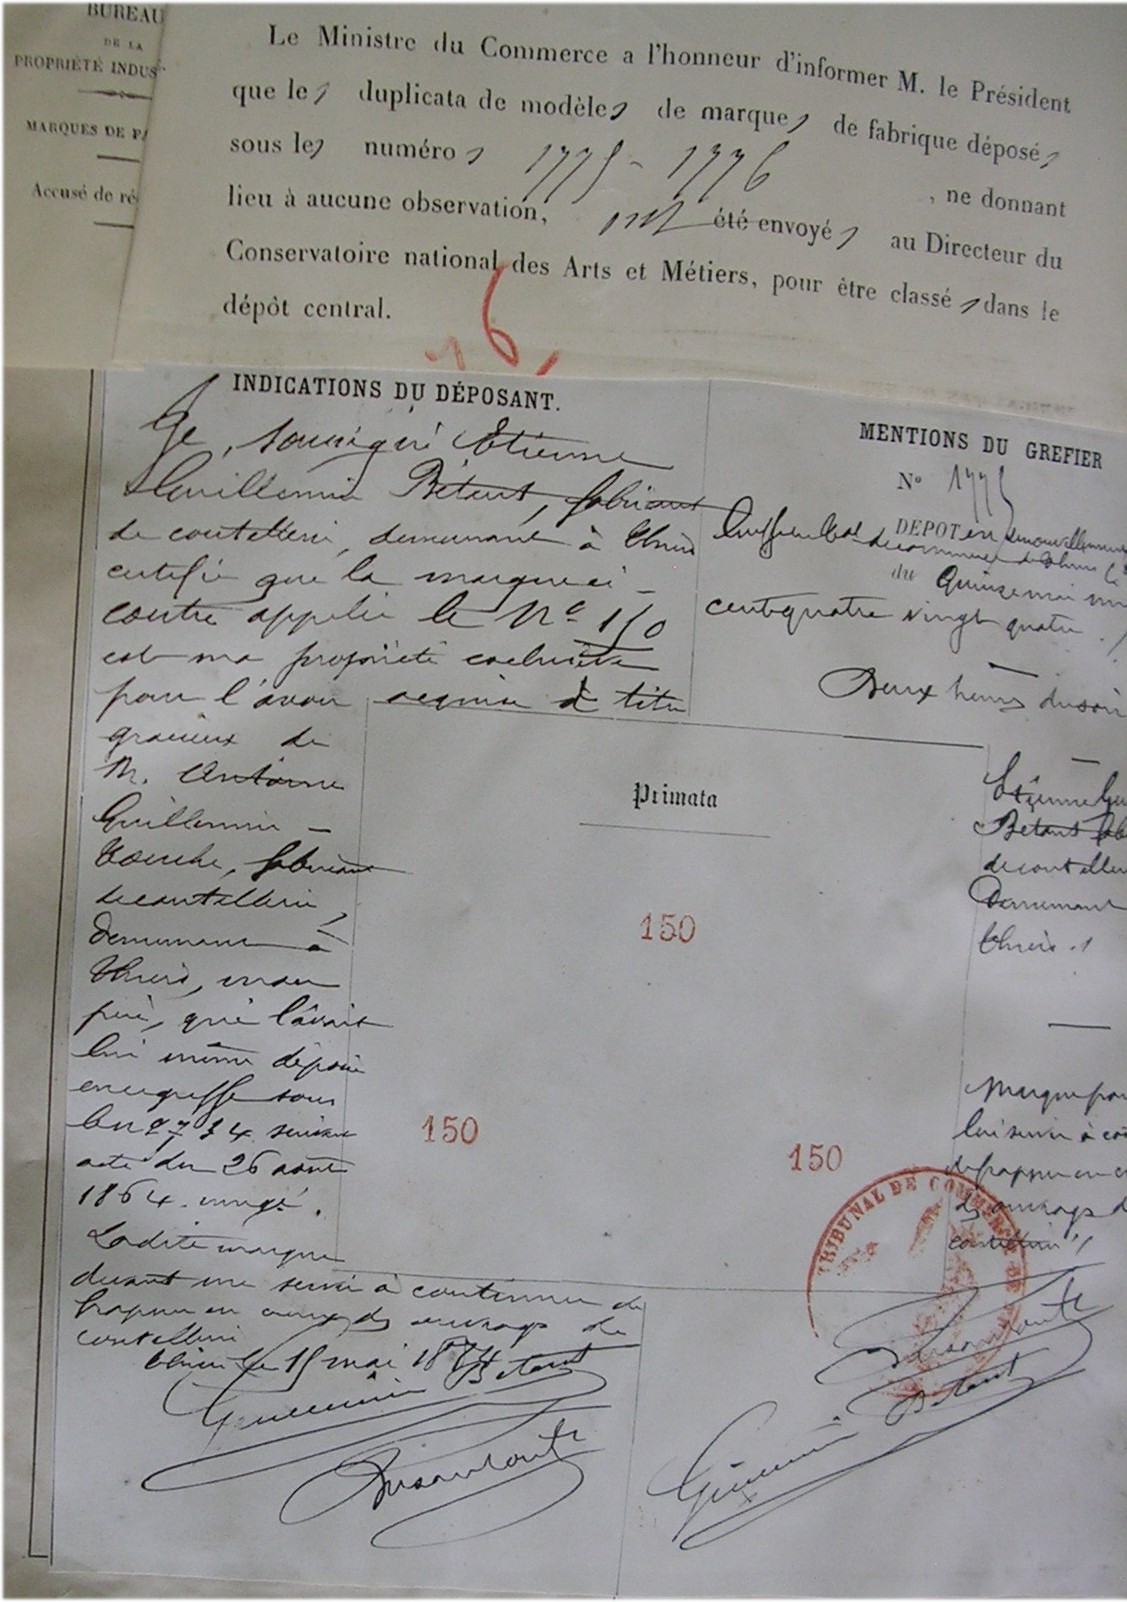 BUREAU
DE LA
PROPRIÉTÉ INDUS
MARQUES DE FA
Accusé de ré
Le Ministre du Commerce a l'honneur d'informer M. le Président
que les duplicata de modèles de marques de fabrique déposés
sous les numéros 1775 - 1776 , ne donnant
lieu à aucune observation, ont été envoyés au Directeur du
Conservatoire national des Arts et Métiers, pour être classés dans le
dépôt central.
16,
INDICATIONS DU DÉPOSANT.
Je, soussigné Etienne
Guillemin Bétant, fabricant
de coutellerie, demeurant à Thiers
certifie que la marque ci-
contre appelée le No 150
est ma propriété exclusive
pour l'avoir acquise à titre
gracieux de
M. Antoine
Guillemin -
fabricant
de coutellerie,
demeurant à
Thiers, mon
père, qui l'avait
lui même déposée
en ce greffe sous
le no 2734 suivant
acte du 26 août
1864.
Ladite marque
devant me servir à continuer de
frapper en creux des ouvrages de
coutellerie
Thiers le 15 mai 1884
Guillemin Bétant
MENTIONS DU GREFIER
No 1775
DEPOT en renouvellement
du Quinze mai mil
cent quatre vingt quatre.
Deux heures du soir
Primata
150
150
150
Etienne Gu
Bétant fab
de coutelle
Demeurant
Thiers.
Marque pou
lui servir à con
frapper en c
des ouvrages d
coutellerie
TRIBUNAL DE COMMERCE DE
Bétant
Guillemin